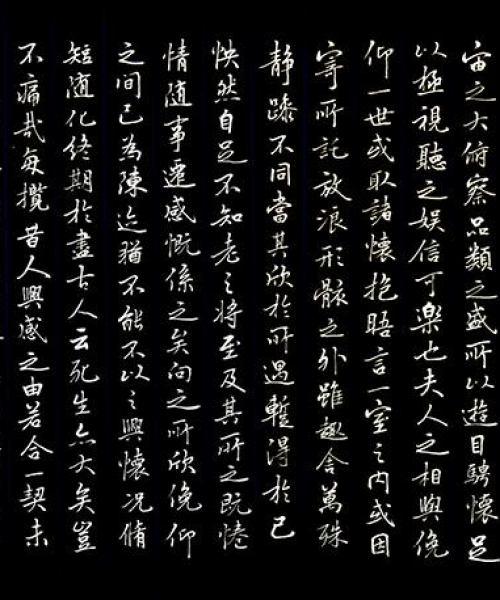 宙之大俯察品類之盛所以遊目騁懷足
以極視聽之娛信可樂也夫人之相與俛
仰一世或取諸懷抱晤言一室之內或因
寄所託放浪形骸之外雖趣舍萬殊
静躁不同當其欣於所遇暫得於己
怏然自足不知老之將至及其所之既惓
情随事遷感慨係之矣向之所欣俛仰
之間已為陳迹猶不能不以之興懷况脩
短随化終期於盡古人云死生亦大矣豈
不痛哉每攬昔人興感之由若合一契未